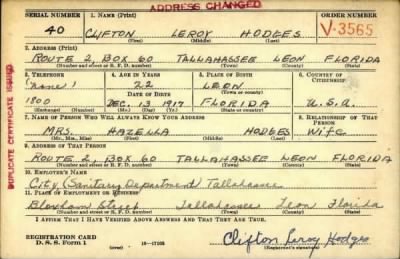 ADDRESS CHANGED
SERIAL NUMBER 1. NAME (Print) ORDER NUMBER
40 CLIFTON LEROY HODGES V-3565
(First) (Middle) (Last)
2. ADDRESS (Print)
ROUTE 2, BOX 60 TALLAHASSEE LEON FLORIDA
(Number and street or R. F. D. number) (Town) (County) (State)
3. TELEPHONE 4. AGE IN YEARS 5. PLACE OF BIRTH 6. COUNTRY OF CITIZENSHIP
"None" 22 LEON
DATE OF BIRTH
1800 DEC. 13 1917 FLORIDA U.S.A.
(Exchange) (Number) (Mo.) (Day) (Yr.) (State or country)
7. NAME OF PERSON WHO WILL ALWAYS KNOW YOUR ADDRESS 8. RELATIONSHIP OF THAT PERSON
MRS. HAZELLA HODGES WIFE
(Mr., Mrs., Miss) (First) (Middle) (Last)
9. ADDRESS OF THAT PERSON
ROUTE 2, BOX 60 TALLAHASSEE LEON FLORIDA
(Number and street or R. F. D. number) (Town) (County) (State)
10. EMPLOYER'S NAME
City Sanitary Department Tallahassee
11. PLACE OF EMPLOYMENT OR BUSINESS
Bloxham Street Tallahassee Leon Florida
(Number and street or R. F. D. number) (Town) (County) (State)
I AFFIRM THAT I HAVE VERIFIED ABOVE ANSWERS AND THAT THEY ARE TRUE.
REGISTRATION CARD
D. S. S. Form 1 16-17105 Clifton Leroy Hodges
(Registrant's signature)
DUPLICATE CERTIFICATE ISSUED